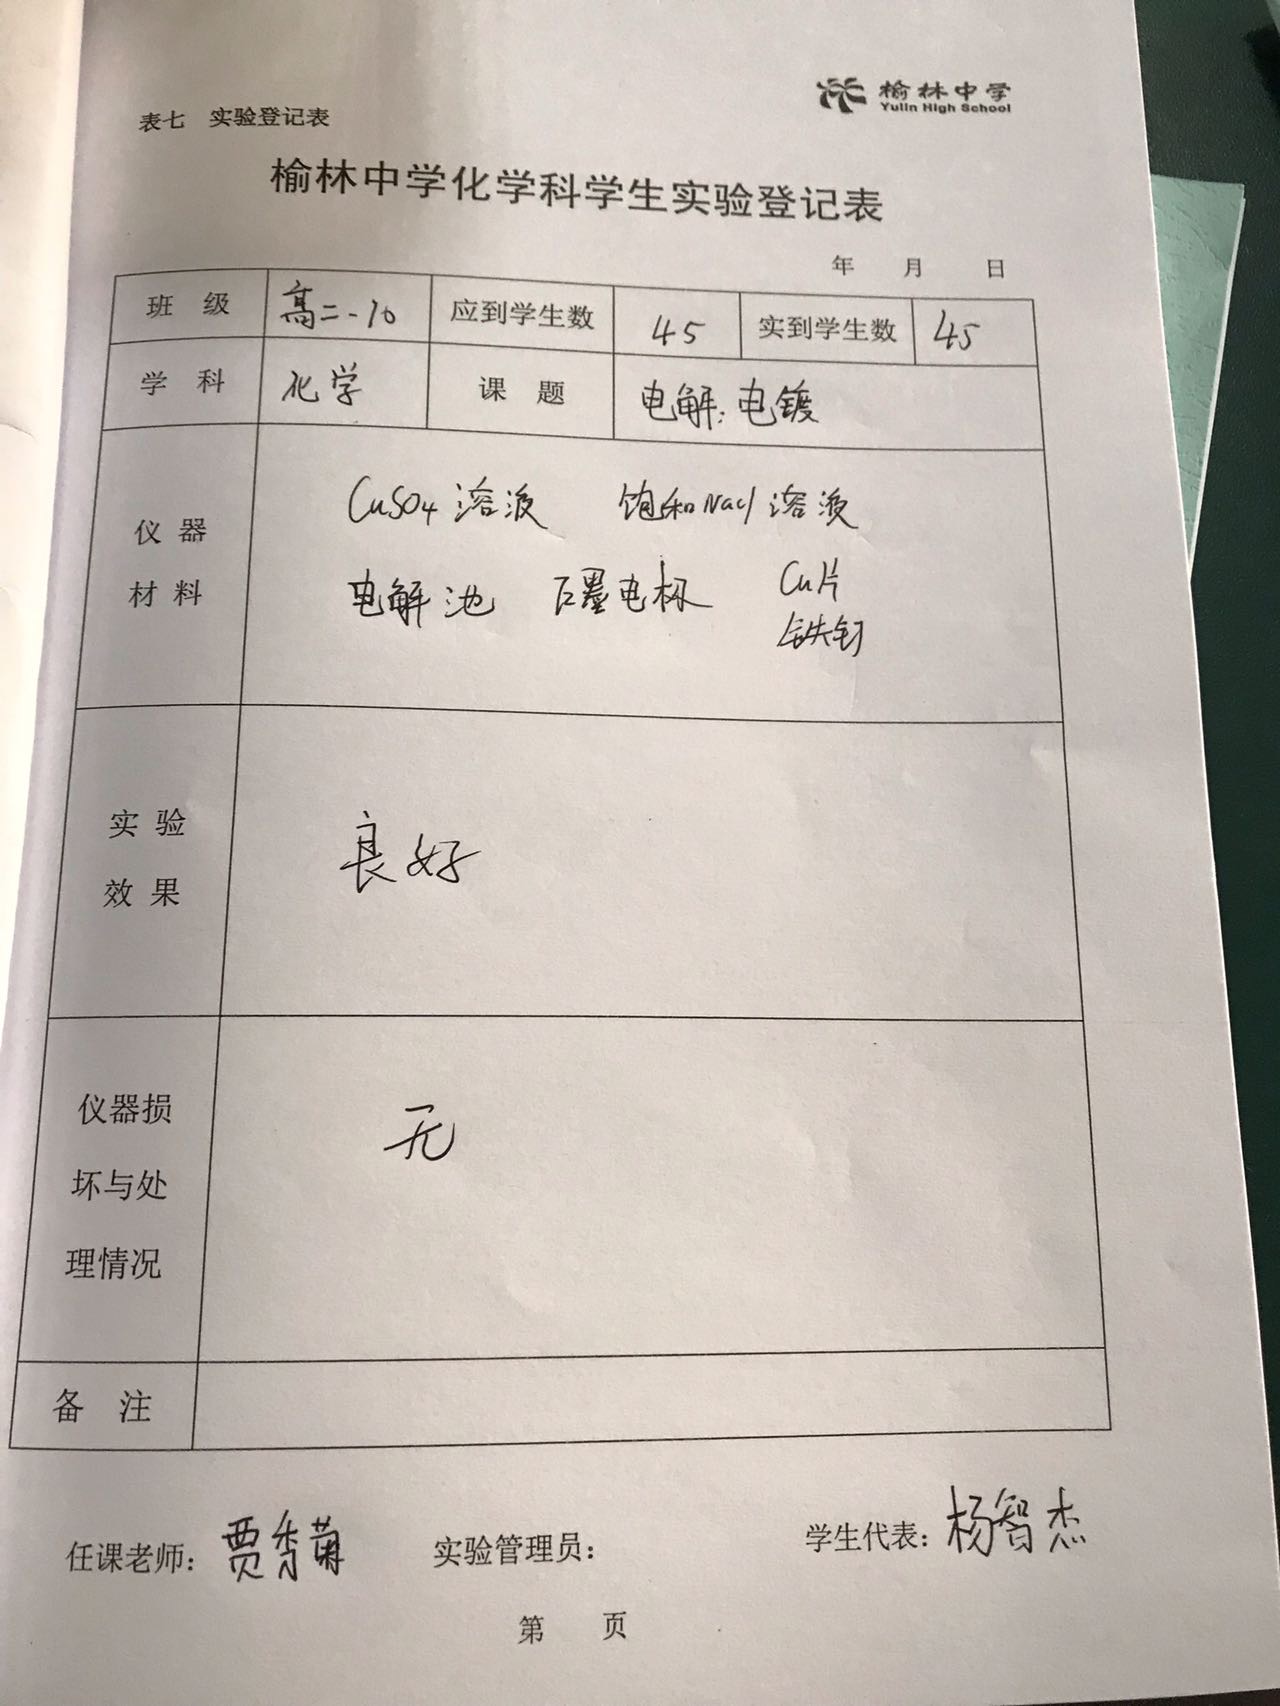 榆林中学
Yulin High School
表七 实验登记表
榆林中学化学科学生实验登记表
年 月 日
班 级 高二-10 应到学生数 45 实到学生数 45
学 科 化学 课 题 电解:电镀
仪 器
材 料
CuSO4溶液 饱和NaCl溶液
电解池 石墨电极 Cu片
铁钉
实 验
效 果
良好
仪器损
坏与处
理情况
无
备 注
任课老师: 贾秀菊 实验管理员: 学生代表: 杨智杰
第 页